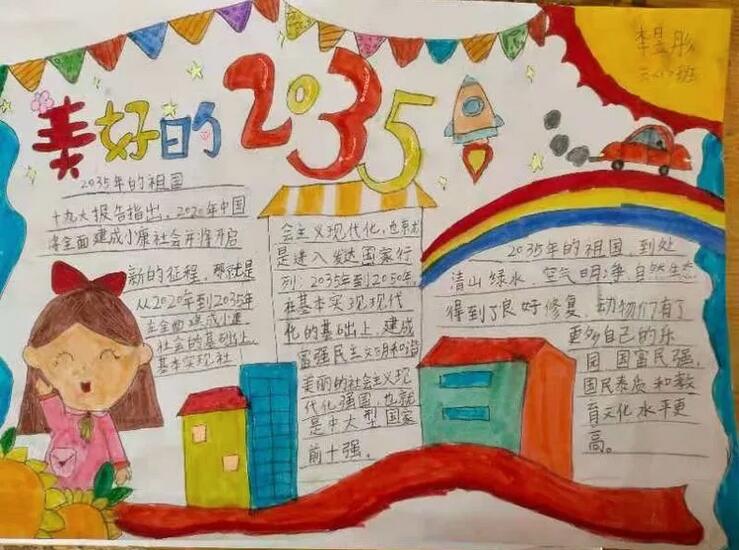 美好的2035
李昱彤
三(八)班
2035年的祖国
十九大报告指出，2020年中国
将全面建成小康社会并将开启
新的征程，那就是
从2020年到2035年
在全面建成小康
社会的基础上，
基本实现社
会主义现代化，也就
是进入发达国家行
列；2035年到2050年，
在基本实现现代
化的基础上，建成
富强民主文明和谐
美丽的社会主义现
代化强国，也就
是中大型国家
前十强。
2035年的祖国，到处
清山绿水，空气明净，自然生态
得到了良好修复，动物们有了
更多自己的乐
园，国富民强，
国民素质和教
育文化水平更
高。